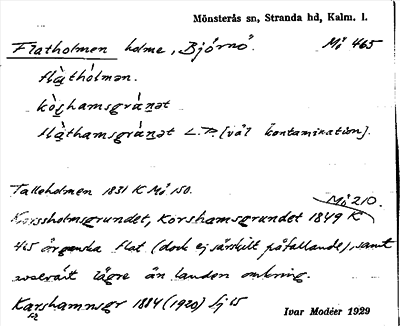 Mönsterås sn, Stranda hd, Kalm. l.
Flatholmen holme, "Björnö". Mö 465
flàthólmən.
kòshamsgrúnət
flàthamsgrúnət L.P. [väl kontamination].
Talleholmen 1831 K Mö 150.
Mö 210.
Korssholmsgrundet, Korshamsgrundet 1849 K
465 är ganska flat (dock ej särskilt påfallande), samt
avsevärt lägre än landen omkring.
Karshamnsgr 1884 (1920) Sj 15
Ivar Modéer 1929